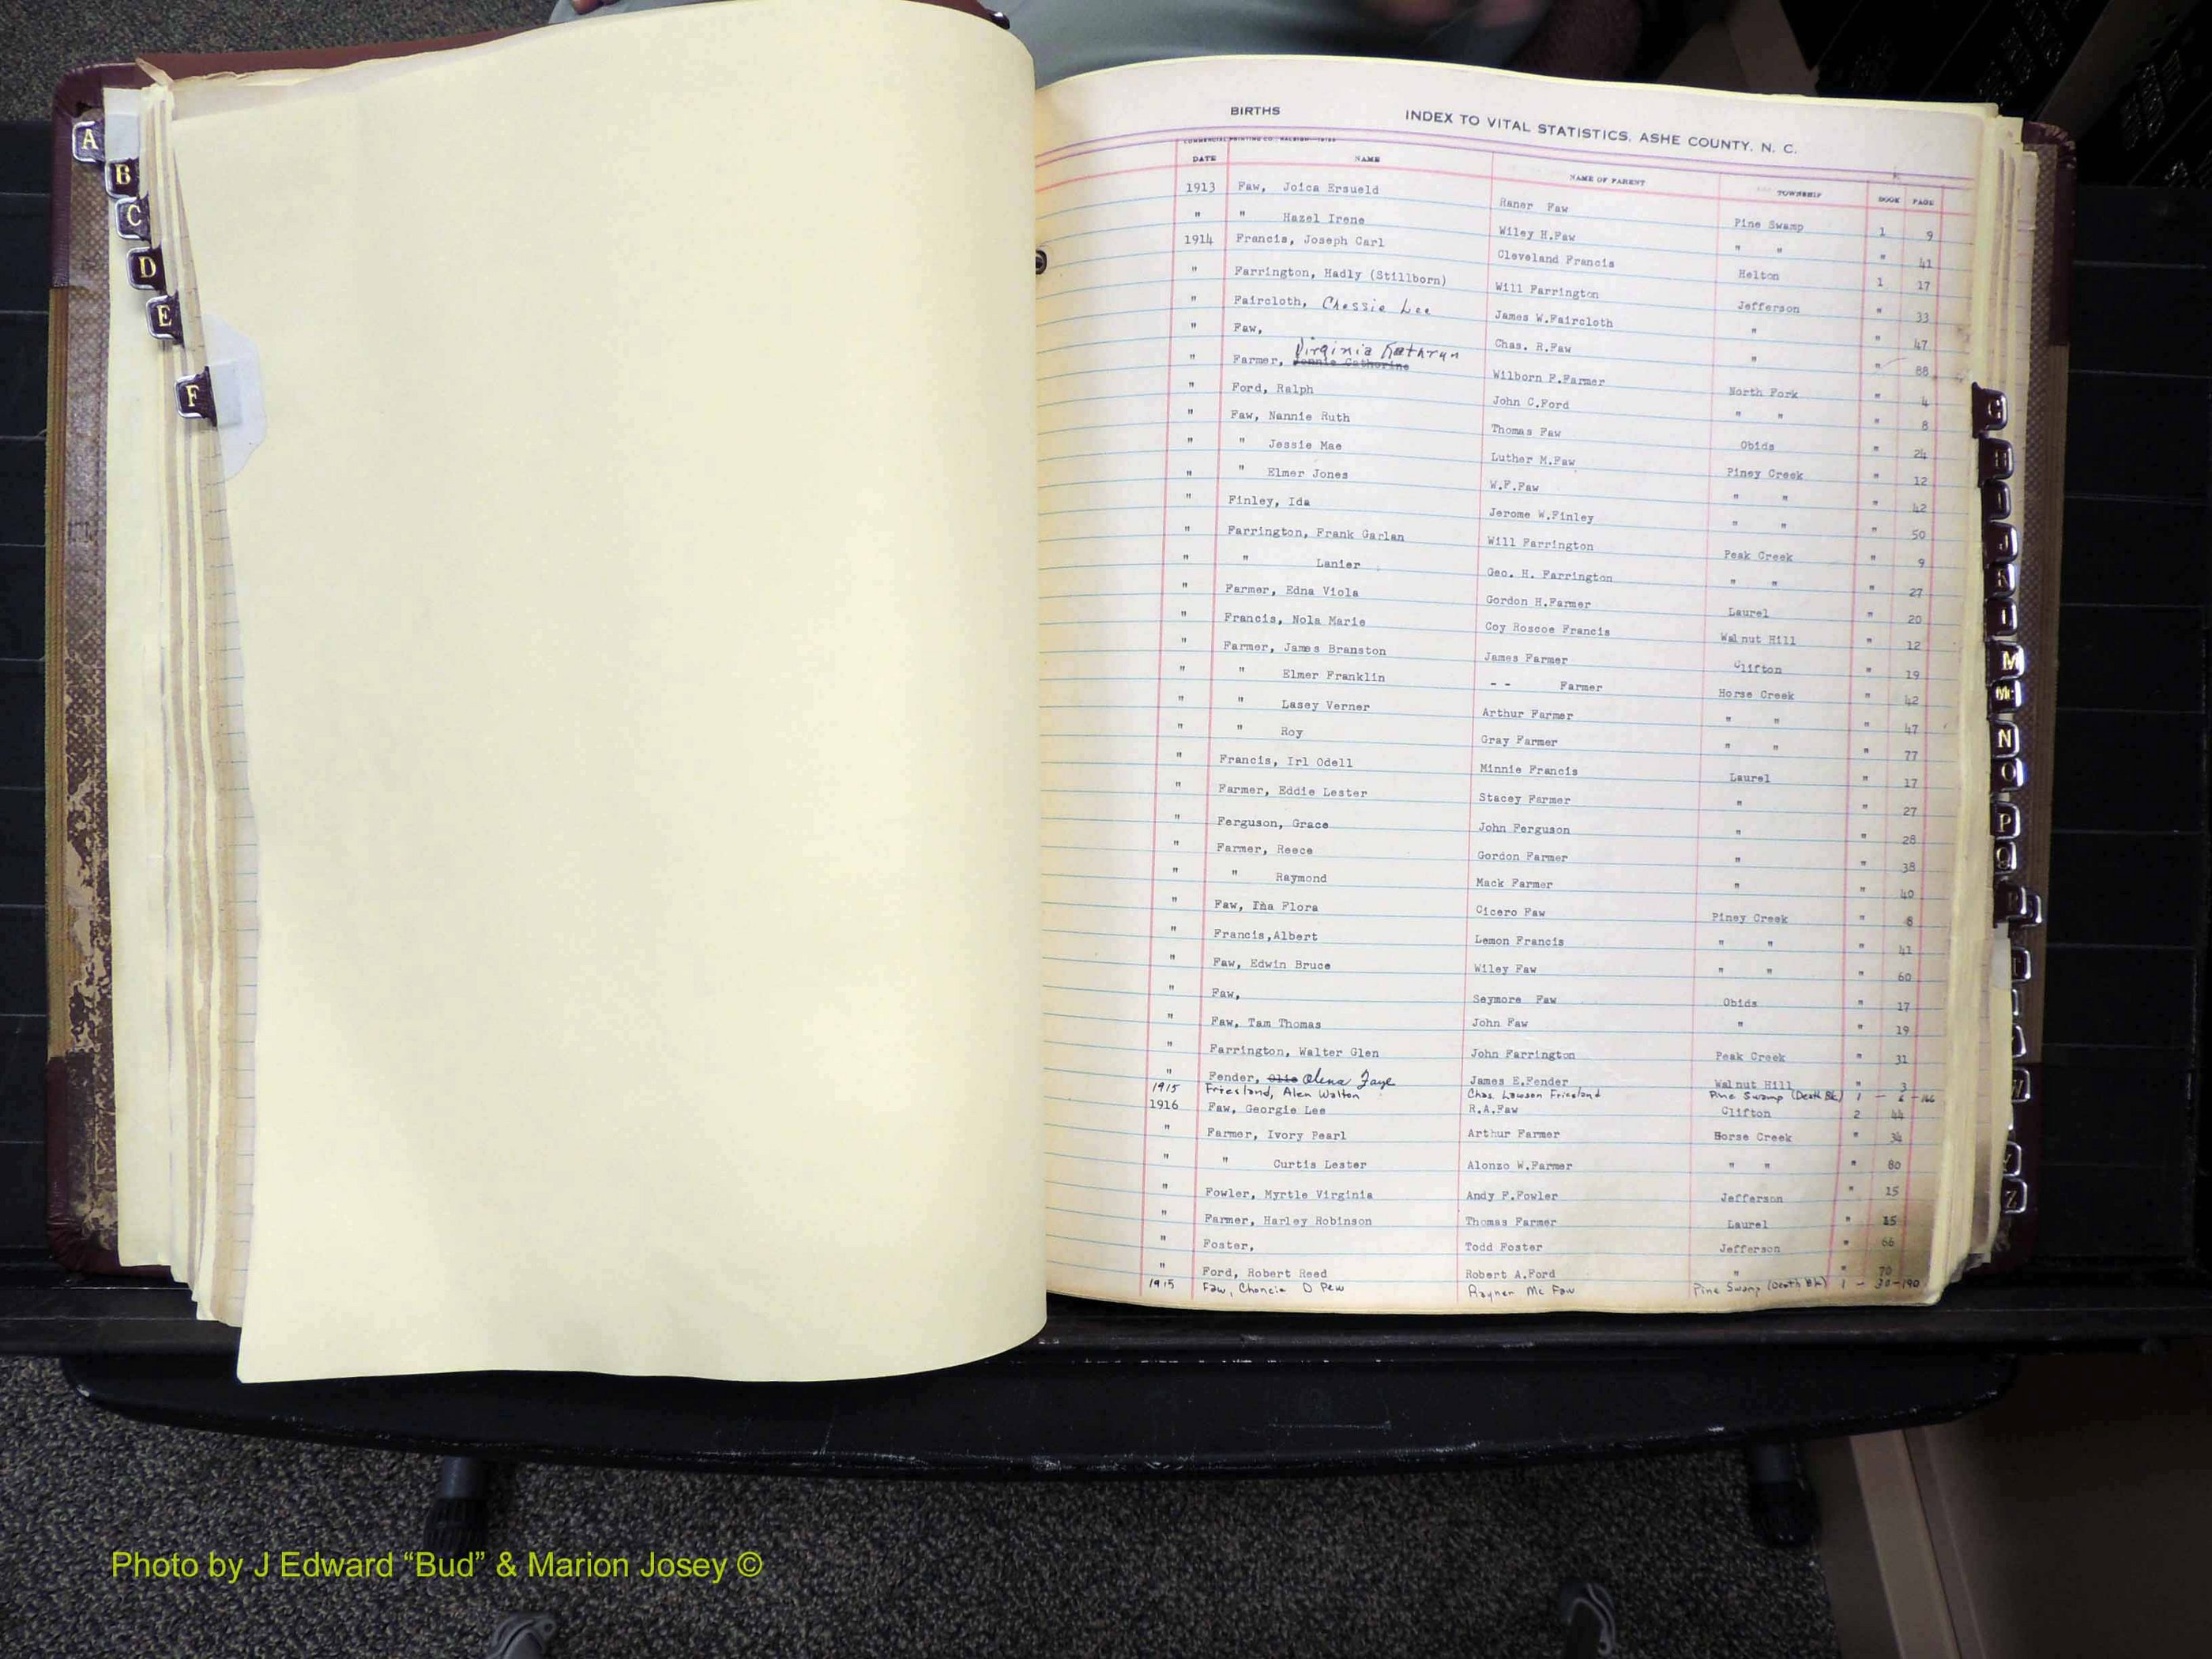 A
B
C
D
E
F
BIRTHS INDEX TO VITAL STATISTICS, ASHE COUNTY, N. C.
DATE NAME NAME OF PARENT TOWNSHIP BOOK PAGE
1913 Faw, Joica Ersueld Raner Faw Pine Swamp 1 9
" " Hazel Irene Wiley H.Faw " " " 41
1914 Francis, Joseph Carl Cleveland Francis Helton 1 17
" Farrington, Hadly (Stillborn) Will Farrington Jefferson " 33
" Faircloth, Chessie Lee James W.Faircloth " " 47
" Faw, Chas. R.Faw " " 88
" Farmer, Jennie Catherine Virginia Kathryn Wilborn F.Farmer North Fork " 4
" Ford, Ralph John C.Ford " " " 8
" Faw, Nannie Ruth Thomas Faw Obids " 24
" " Jessie Mae Luther M.Faw Piney Creek " 12
" " Elmer Jones W.F.Faw " " " 42
" Finley, Ida Jerome W.Finley " " " 50
" Farrington, Frank Garlan Will Farrington Peak Creek " 9
" " Lanier Geo. H. Farrington " " " 27
" Farmer, Edna Viola Gordon H.Farmer Laurel " 20
" Francis, Nola Marie Coy Roscoe Francis Walnut Hill " 12
" Farmer, James Branston James Farmer Clifton " 19
" " Elmer Franklin - - Farmer Horse Creek " 42
" " Lasey Verner Arthur Farmer " " " 47
" " Roy Gray Farmer " " " 77
" Francis, Irl Odell Minnie Francis Laurel " 17
" Farmer, Eddie Lester Stacey Farmer " " 27
" Ferguson, Grace John Ferguson " " 28
" Farmer, Reece Gordon Farmer " " 38
" " Raymond Mack Farmer " " 40
" Faw, Ina Flora Cicero Faw Piney Creek " 8
" Francis,Albert Lemon Francis " " " 41
" Faw, Edwin Bruce Wiley Faw " " " 60
" Faw, Seymore Faw Obids " 17
" Faw, Tam Thomas John Faw " " 19
" Farrington, Walter Glen John Farrington Peak Creek " 31
" Fender, Ollie Olena Faye James E.Fender Walnut Hill " 3
1915 Friesland, Alen Walton Chas. Lawson Friesland Pine Swamp (Death Bk) 1 - 6 - 166
1916 Faw, Georgie Lee R.A.Faw Clifton 2 44
" Farmer, Ivory Pearl Arthur Farmer Horse Creek " 34
" " Curtis Lester Alonzo W.Farmer " " " 80
" Fowler, Myrtle Virginia Andy F.Fowler Jefferson " 15
" Farmer, Harley Robinson Thomas Farmer Laurel " 15
" Foster, Todd Foster Jefferson " 66
" Ford, Robert Reed Robert A.Ford " " 70
1915 Faw, Choncie D Pew Rayner Mc Faw Pine Swamp (Death Bk) 1 - 30-190
G
H
I
J
K
L
M
Mc
N
O
P
Q
R
T
W
Y
Z
Photo by J Edward “Bud” & Marion Josey ©